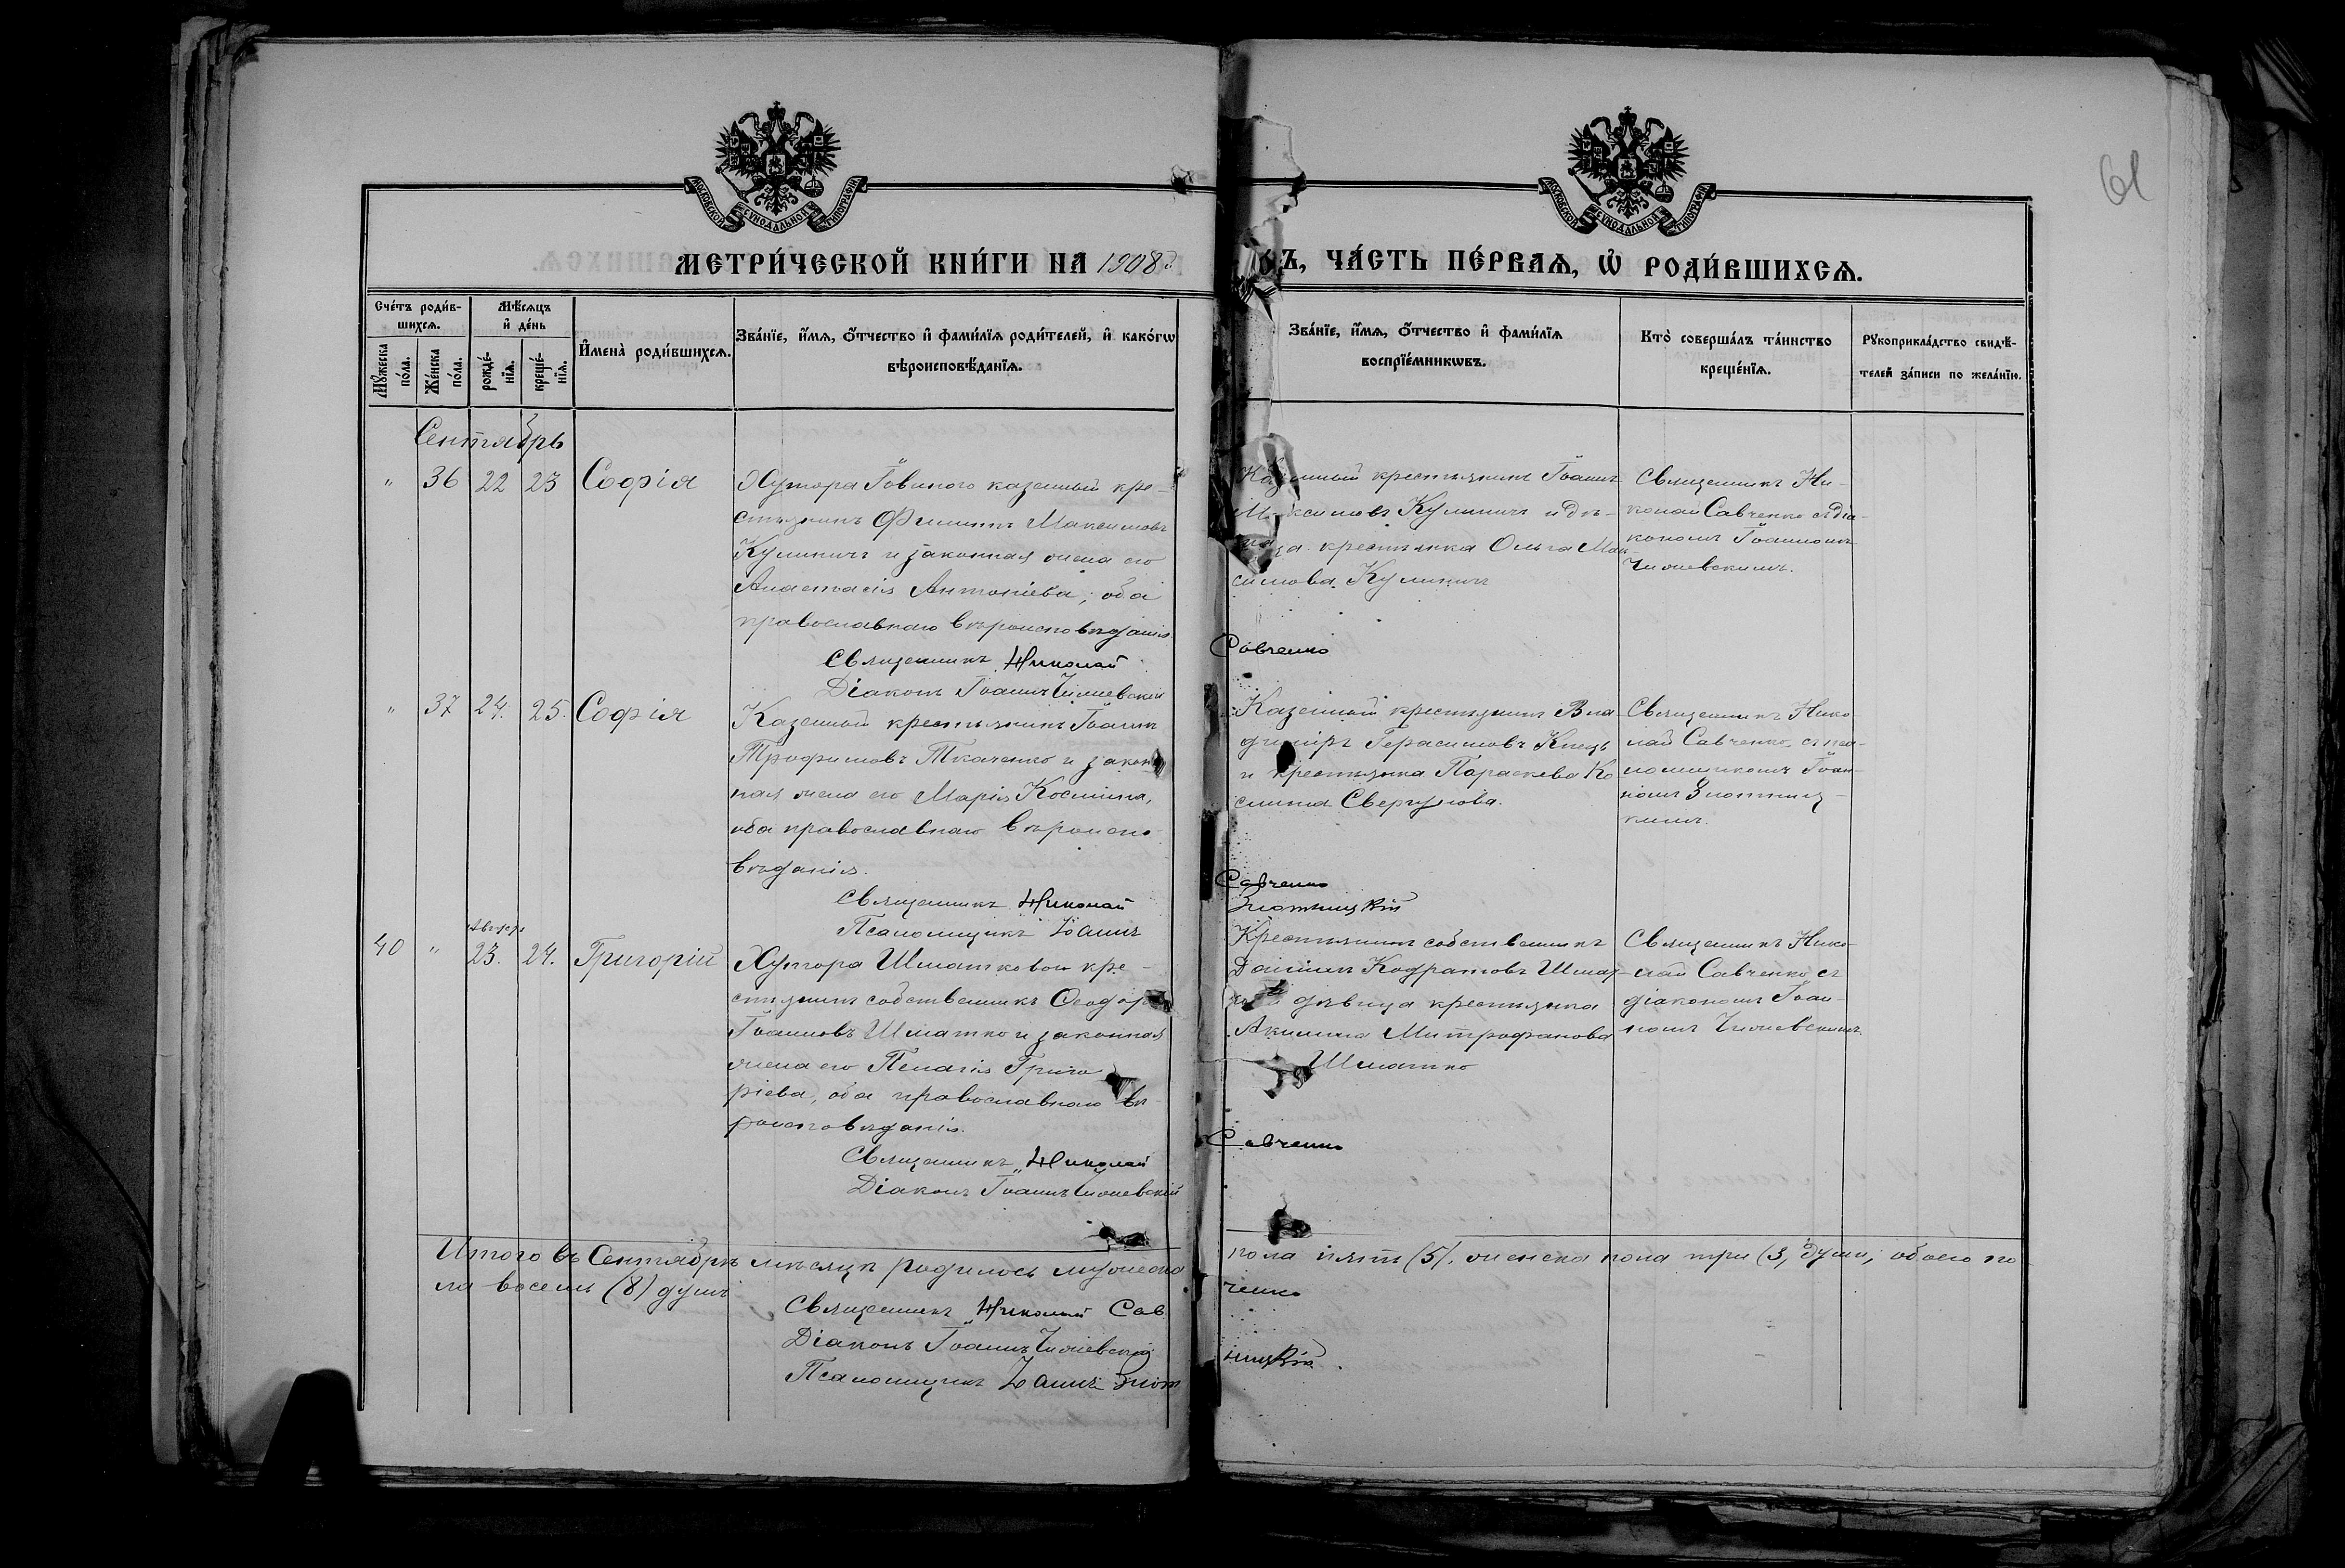 61
МОСКОВСКОЙ СѴНОДАЛЬНОЙ ТИПОГРАФІИ
МОСКОВСКОЙ СѴНОДАЛЬНОЙ ТИПОГРАФІИ
МЕТРИ́ЧЕСКОЙ КНИ́ГИ НА 1908 г
ЧА́СТЬ ПЕ́РВАѦ, Ѡ҆ РОДИ́ВШИХСѦ.
Сче́тъ роди́в-
шихсѧ.
Мꙋ́жеска по́ла.
Же́нска по́ла.
Мѣ́сѧцъ
и҆ де́нь
рожде́-
нїѧ.
креще́-
нїѧ.
И҆мена̀ роди́вшихсѧ.
Зва́нїе, и҆́мѧ, ѻ҆́тчество и҆ фами́лїѧ роди́телей, и҆ како́гѡ
вѣроисповѣ́данїѧ.
Зва́нїе, и҆́мѧ, ѻ҆́тчество и҆ фами́лїѧ
воспрїе́мникѡвъ.
Кто̀ соверша́лъ та́инство
креще́нїѧ.
Рꙋкоприкла́дство свидѣ́-
телей за́писи по жела́нїю.
Сентябрь
" 36 22 23 Софія
Хутора казенный кре-
стьянинъ Филиппъ Максимовъ
Кулиничъ и законная жена его
Анастасія Антоніева, оба
православнаго вѣроисповѣданія.
Священникъ Николай Савченко
Діаконъ Іоаннъ
крестьянинъ Іоаннъ
Максимовъ Кулиничъ и дѣ-
вица крестьянка Ольга Мак-
симова Кулиничъ
Священникъ Ни-
колай Савченко съ діа-
кономъ Іоанномъ
" 37 24. 25. Софія
Казенный крестьянинъ Іоаннъ
Трофимовъ Ткаченко и закон
ная жена его Марія Космина,
оба православнаго вѣроиспо-
вѣданія.
Священникъ Николай Савченко
Псаломщикъ Іоаннъ Злотницкій
Казенный крестьянинъ Вла-
диміръ Герасимовъ
и крестьянка Параскева Ко
смина
Священникъ Нико-
лай Савченко, съ пса-
ломщикомъ Іоан-
номъ Злотниц-
кимъ.
40 " 23. 24. Григорій
Хутора Шматковой кре-
стьянинъ собственникъ Ѳеодоръ
Іоанновъ Шматко и законная
жена его Пелагія Григо
ріева, оба православнаго вѣ-
роисповѣданія.
Священникъ Николай Савченко
Діаконъ Іоаннъ
Крестьянинъ собственникъ
Даніилъ Кодратовъ
дѣвица крестьянка
Акилина Митрофанова
Шматко
Священникъ Нико-
лай Савченко съ
діакономъ Іоан-
номъ
Итого въ Сентябрѣ мѣсяцѣ родилось мужеска пола пять (5), женска пола три (3) души, обоего по-
ла восемь (8) душъ
Священникъ Николай Савченко
Діаконъ Іоаннъ
Псаломщикъ Іоаннъ Злотницкій.